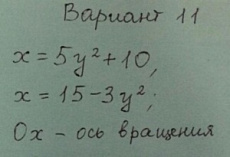 Вариант 11
x = 5y²+10,
x = 15-3y²;
Ox - ось вращения